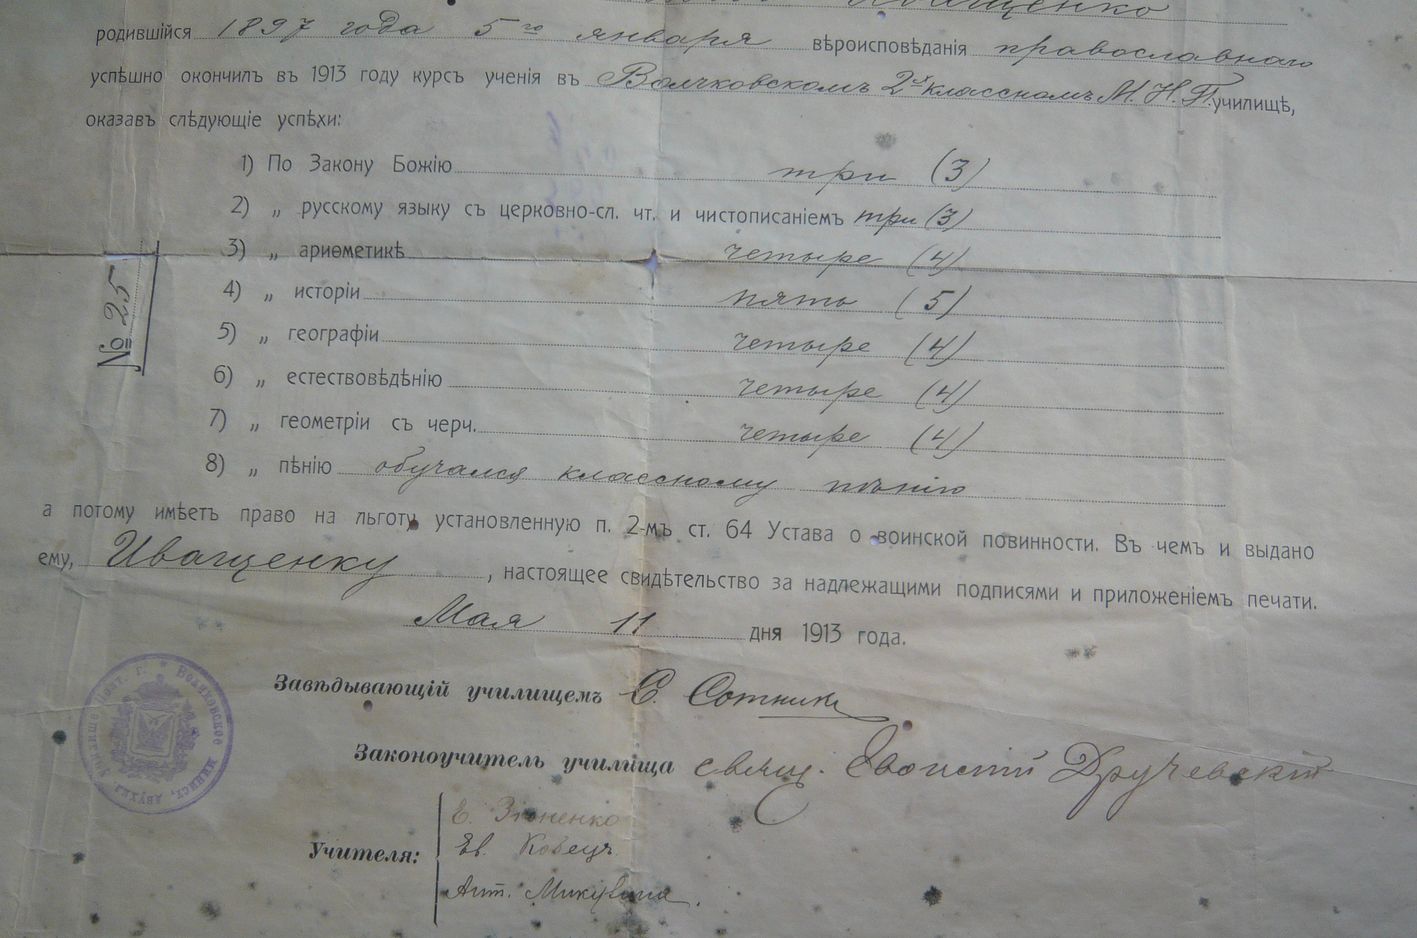 Иващенко
родившійся 1897 года 5го января вѣроисповѣданія православнаго
успѣшно окончилъ въ 1913 году курсъ ученія въ Волчковскомъ 2х классномъ М. Н. П. училищѣ,
оказавъ слѣдующіе успѣхи:
1) По Закону Божію три (3)
2) „ русскому языку съ церковно-сл. чт. и чистописаніемъ три (3)
3) „ ариѳметикѣ четыре (4)
4) „ исторіи пять (5)
5) „ географіи четыре (4)
6) „ естествовѣдѣнію четыре (4)
7) „ геометріи съ черч. четыре (4)
8) „ пѣнію обучался классному пѣнію
№ 25
а потому имѣетъ право на льготу установленную п. 2-мъ ст. 64 Устава о воинской повинности. Въ чемъ и выдано
ему, Иващенку, настоящее свидѣтельство за надлежащими подписями и приложеніемъ печати.
Мая 11 дня 1913 года.
Завѣдывающій училищемъ С. Сотник
Законоучитель училища свящ. Дручевскій
Е. Зюненко
Учителя: Ев. Кобецъ
Ант. Микулина.